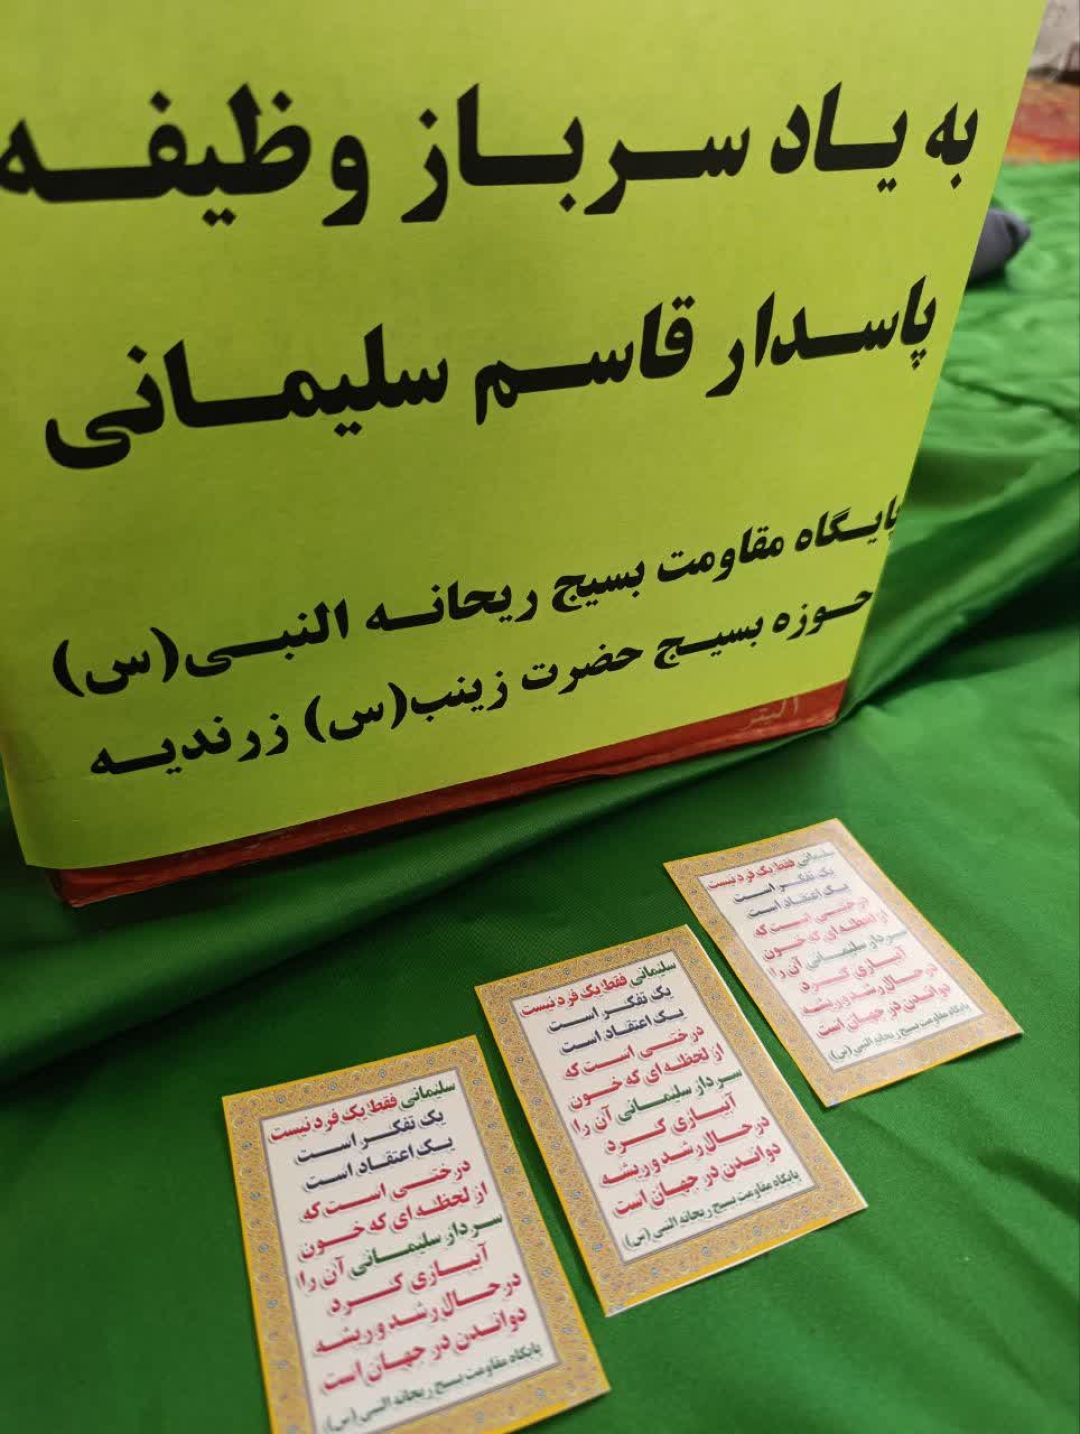 به یاد سرباز وظیفه
پاسدار قاسم سلیمانی
پایگاه مقاومت بسیج ریحانه النبی(س)
حوزه بسیج حضرت زینب(س) زرندیه
البتر
سلیمانی فقط یک فرد نیست
یک تفکر است
یک اعتقاد است
درختی است که
از لحظه ای که خون
سردار سلیمانی آن را
آبیاری کرد
در حال رشد و ریشه
دواندن در جهان است
پایگاه مقاومت بسیج ریحانه النبی (س)
سلیمانی فقط یک فرد نیست
یک تفکر است
یک اعتقاد است
درختی است که
از لحظه ای که خون
سردار سلیمانی آن را
آبیاری کرد
در حال رشد و ریشه
دواندن در جهان است
پایگاه مقاومت بسیج ریحانه النبی (س)
سلیمانی فقط یک فرد نیست
یک تفکر است
یک اعتقاد است
درختی است که
از لحظه ای که خون
سردار سلیمانی آن را
آبیاری کرد
در حال رشد و ریشه
دواندن در جهان است
پایگاه مقاومت بسیج ریحانه النبی (س)